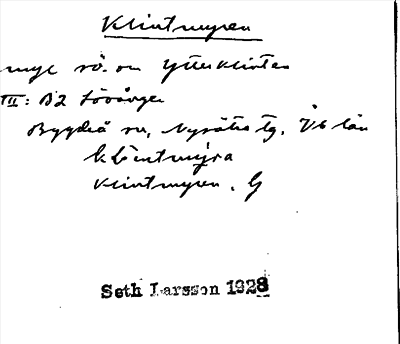 Klintmyren
myr sö. om Ytterklinten
III: B2 Lövånger
Bygdeå sn, Nysätra tg, Vb län
klintmyra
Klintmyren, G
Seth Larsson 1928